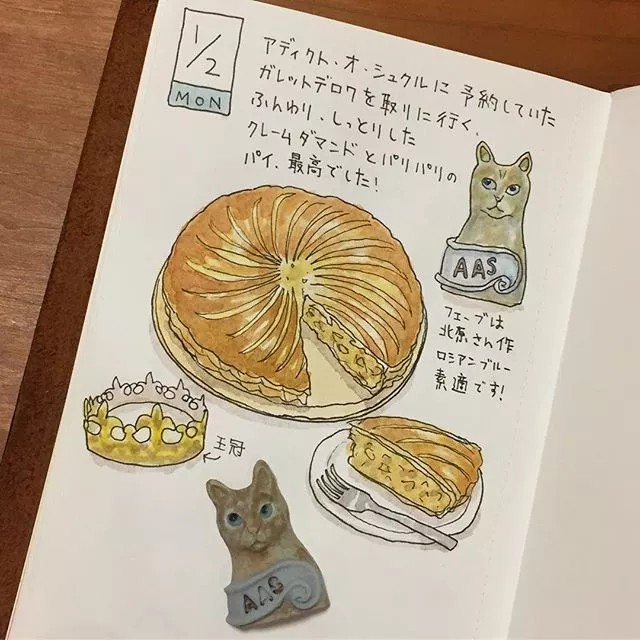 1/2
MON
アディクト・オ・シュクルに予約していた
ガレットデロワを取りに行く、
ふんわり、しっとりした
クレームダマンドとパリパリの
パイ、最高でした!
AAS
フェーブは
北原さん作
ロシアンブルー
素適です!
王冠
AAS